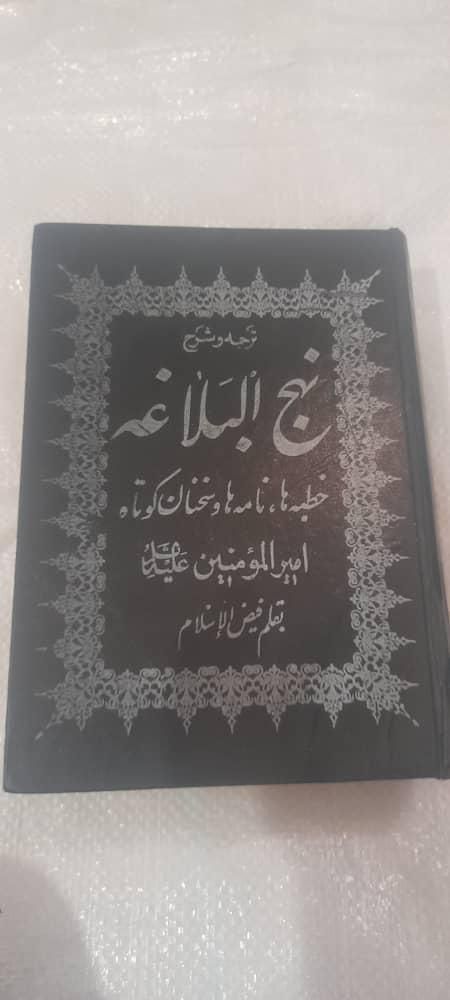 ترجمه و شرح
نهج البلاغه
خطبه ها، نامه ها و سخنان کوتاه
امیرالمؤمنین علیه‌السلام
بقلم فیض الإسلام